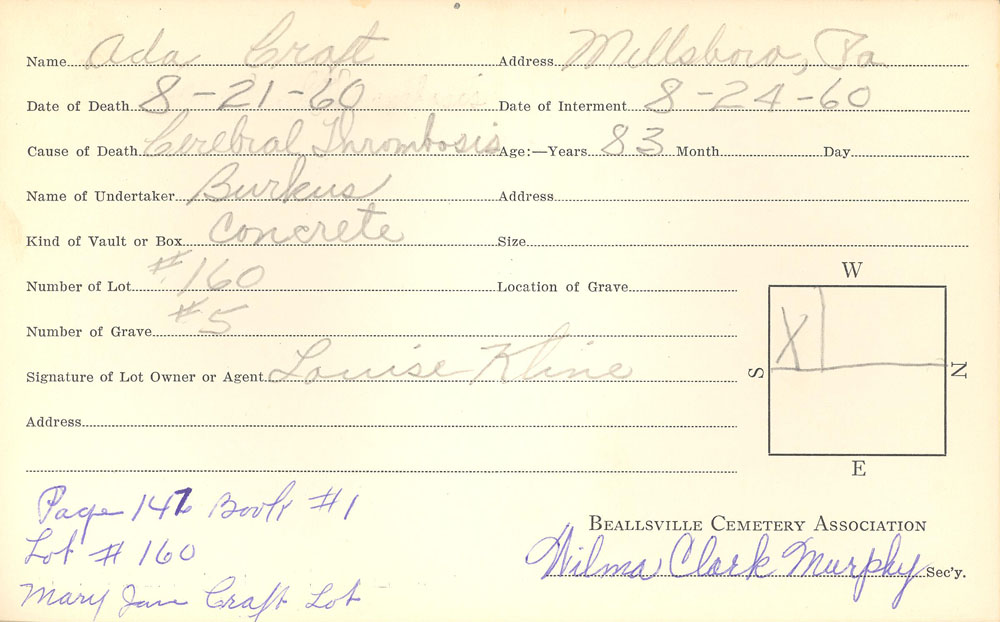 Name Ada Craft Address Millsboro, Pa
Date of Death 8-21-60 Date of Interment 8-24-60
Cause of Death Cerebral Thrombosis Age:—Years 83 Month Day
Name of Undertaker Burkus Address
Kind of Vault or Box Concrete Size
Number of Lot #160 Location of Grave
Number of Grave #5
Signature of Lot Owner or Agent Louise Kline
Address
W
X
S
N
E
Page 147 Book #1
Lot # 160
Mary Jane Craft Lot
BEALLSVILLE CEMETERY ASSOCIATION
Wilma Clark Murphy Sec'y.